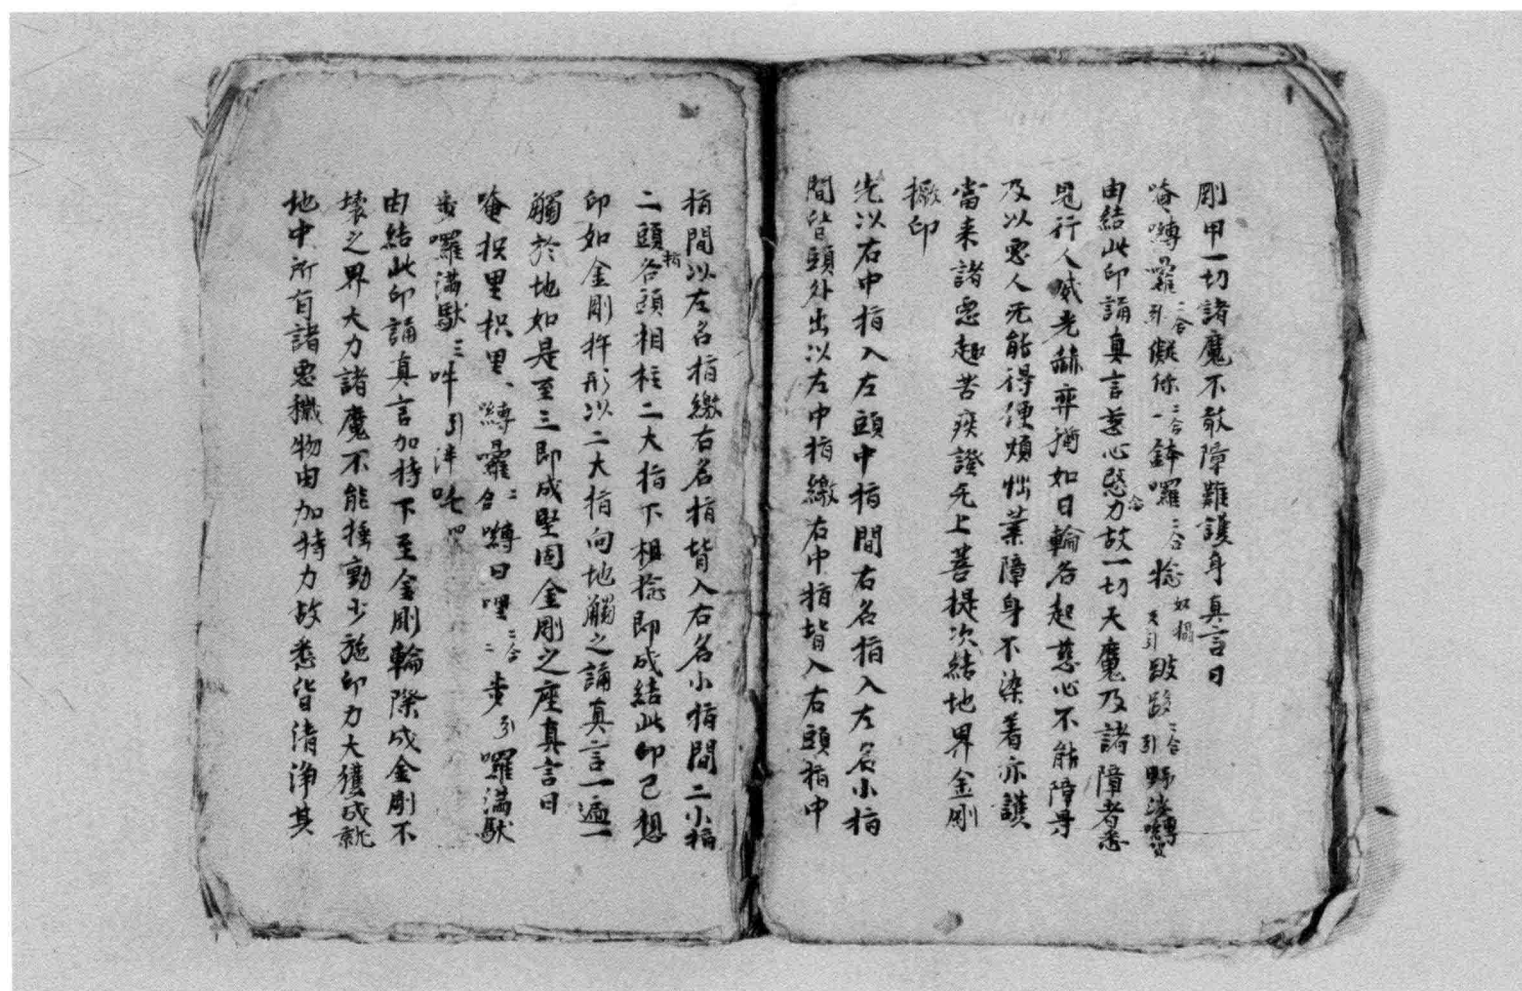 剛甲一切諸魔不敢障難護身真言曰
唵嚩囉二合引儗你二合一鉢囉二合捻如榻反引皷跢二合引野娑嚩賀
由結此印誦真言慈心愍念力故一切天魔及諸障者悉
見行人威光赫弈猶如日輪各起慈心不能障㝵
及以惡人无能得便煩惱業障身不染著亦護
當来諸惡趣苦疾證无上菩提次結地界金剛
橛印
先以右中指入左頭中指間右名指入左名小指
間皆頭外出以左中指繳右中指背入右頭指中
指間以左名指繳右名指背入右名小指間二小指
二頭指各頭相柱二大指下相捻即成結此印已想
印如金剛杵形以二大指向地觸之誦真言一遍一
觸於地如是至三即成堅固金剛之座真言曰
唵枳里枳里一嚩囉二合嚩曰哩二合二步引囉滿馱
步囉滿馱三吽引泮吒四
由結此印誦真言加持下至金剛輪際成金剛不
壞之界大力諸魔不能搖動少施印力大獲成就
地中所有諸惡穢物由加持力故悉皆清淨其